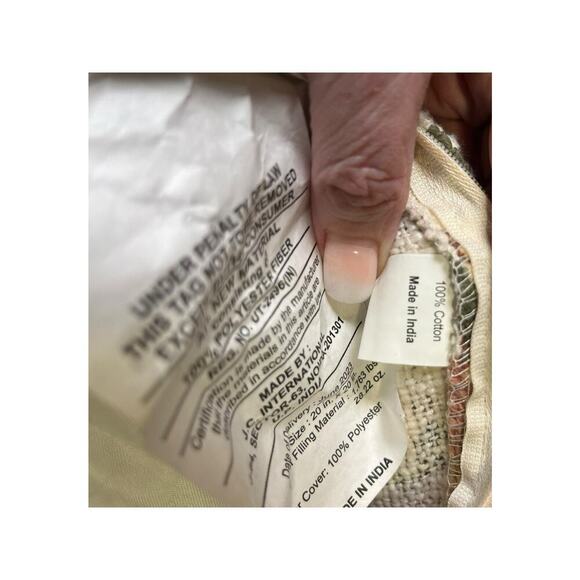 UNDER PENALTY OF LAW
THIS TAG NOT TO BE REMOVED
EXCEPT BY CONSUMER
ALL NEW MATERIAL
Consisting of
100% POLYESTER FIBER
REG. NO. UT-2496(IN)
Certification made by the manufacturer
materials in this article are
described in accordance with law.
MADE BY:
J.C. INTERNATIONAL
SECTOR-63, NOIDA-201301
U.P. INDIA
Date of Delivery: June 2023
Size : 20 in. x 20 in.
Filling Material : 1.763 lbs
28.22 oz.
Cover: 100% Polyester
MADE IN INDIA
100% Cotton
Made in India